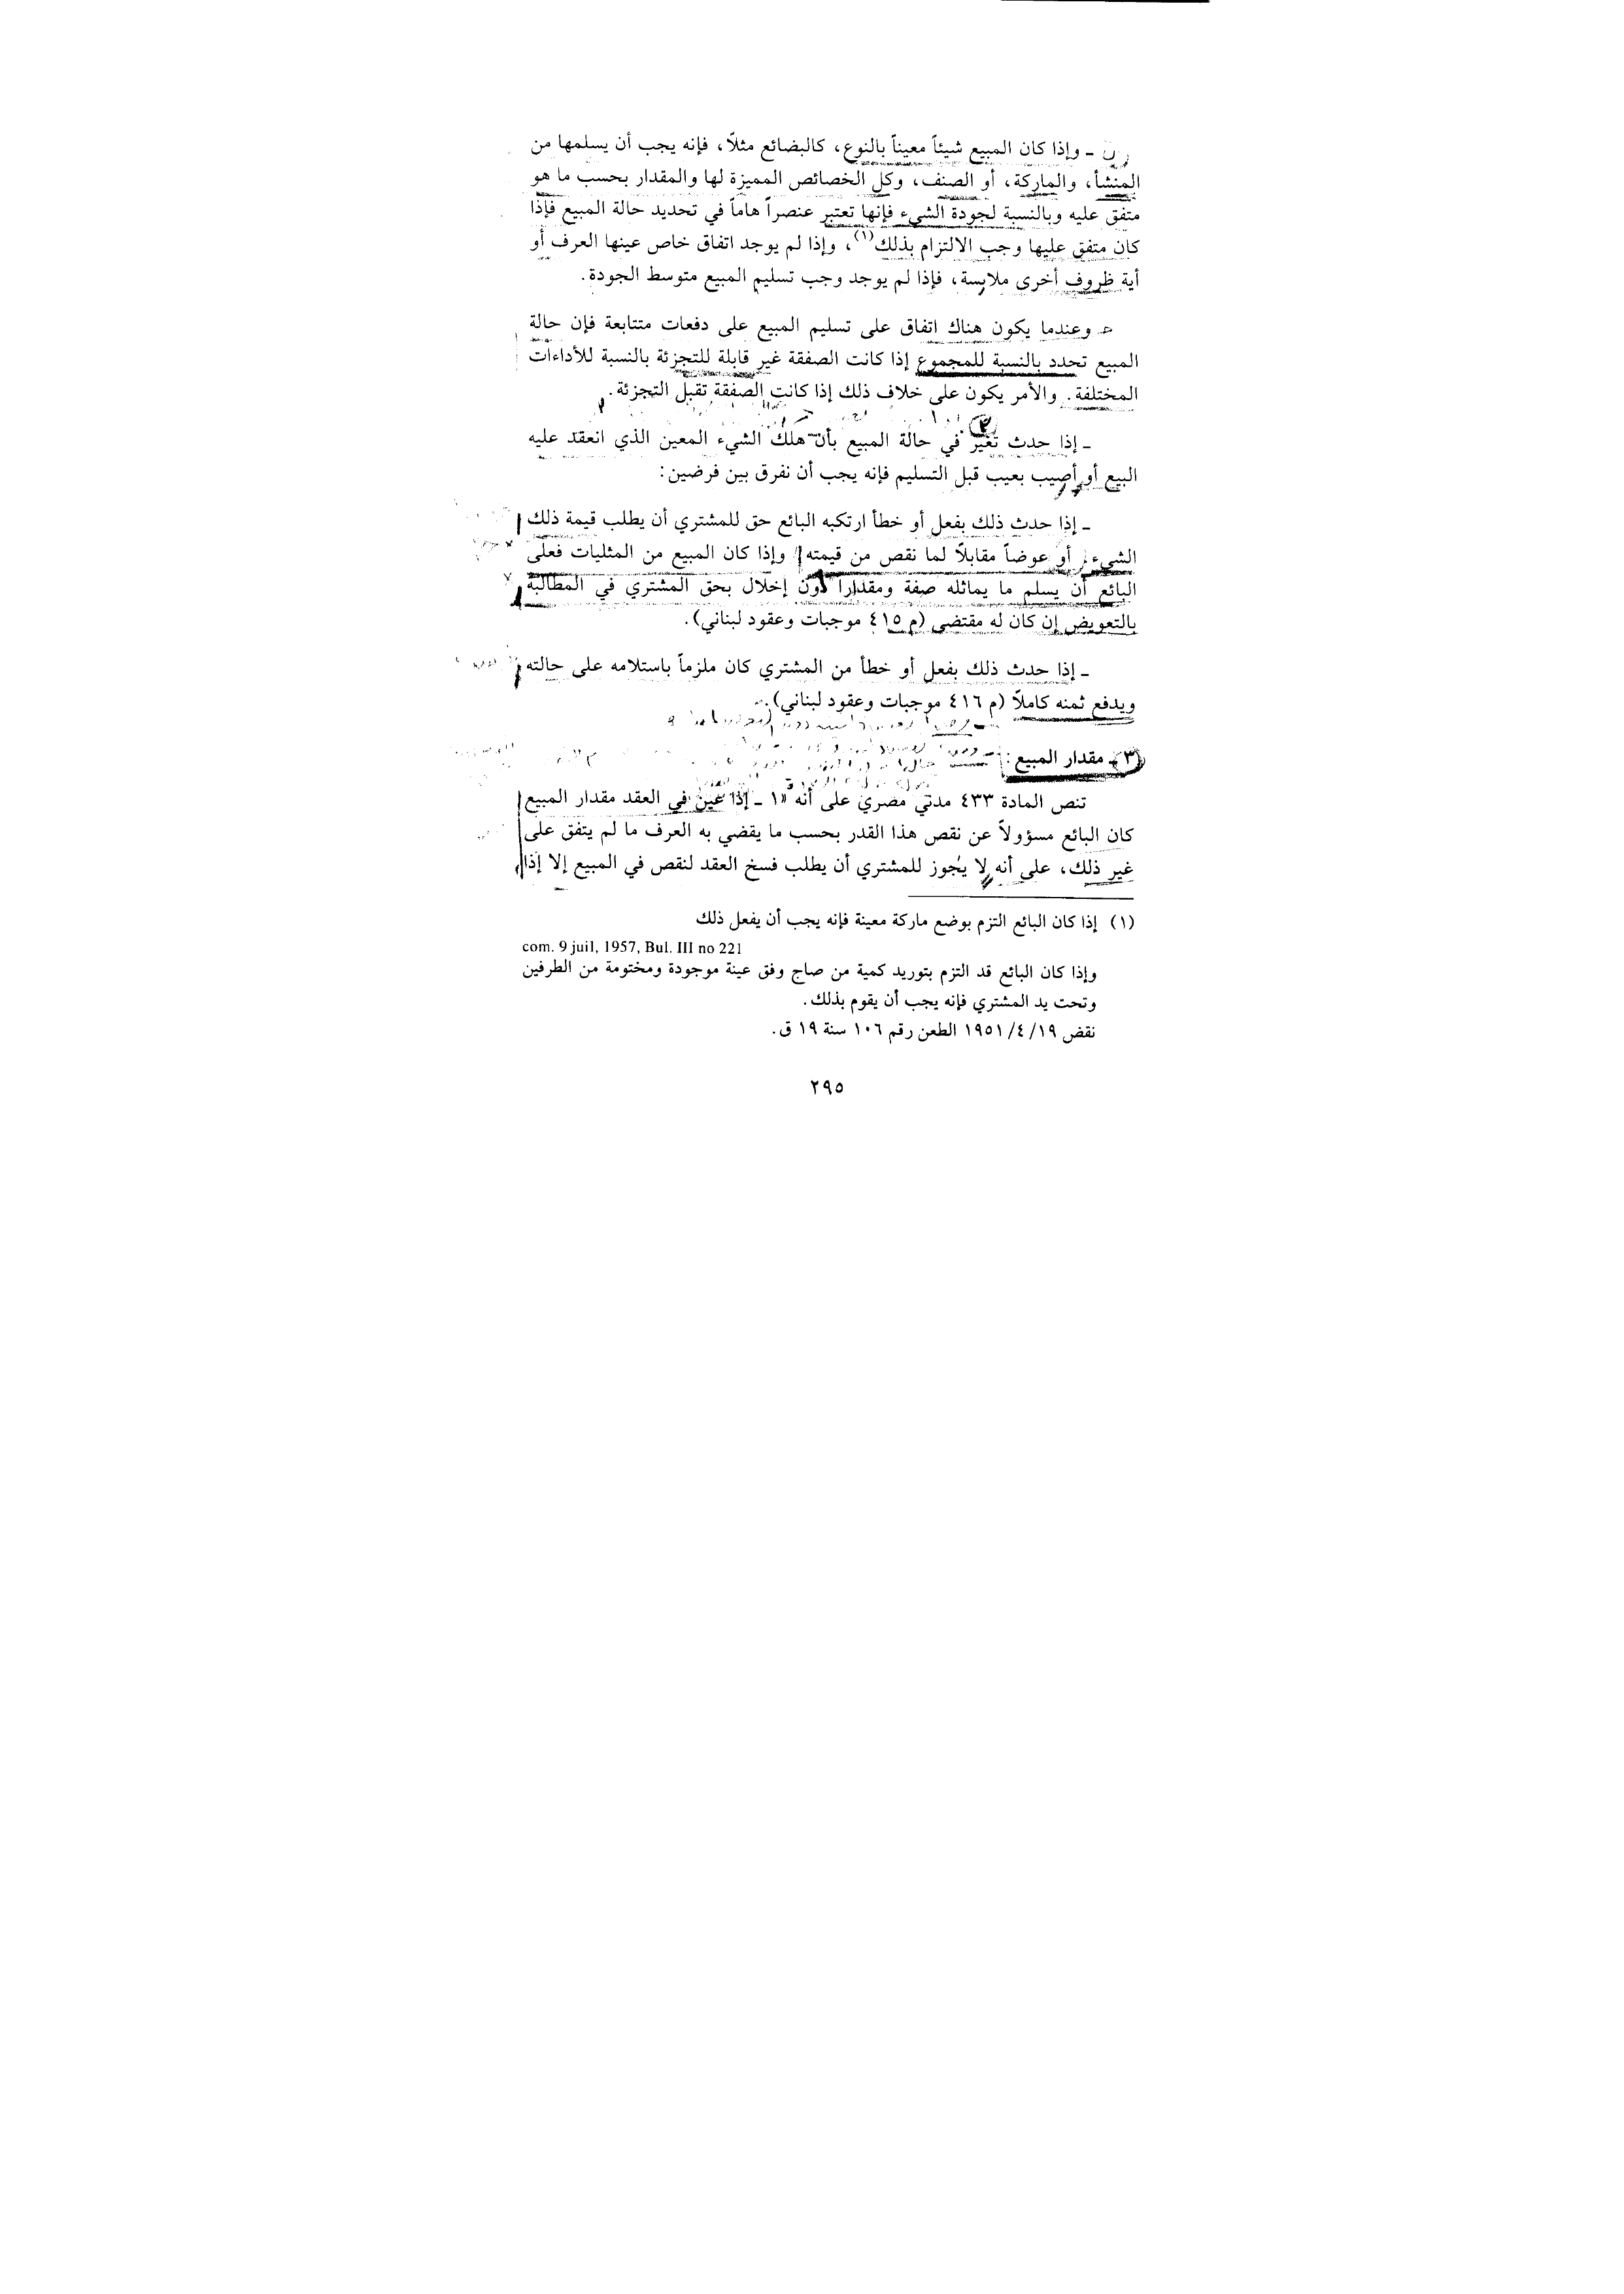 ـ وإذا كان المبيع شيئاً معيناً بالنوع، كالبضائع مثلاً، فإنه يجب أن يسلمها من
المنشأ، والماركة، أو الصنف، وكل الخصائص المميزة لها والمقدار بحسب ما هو
متفق عليه وبالنسبة لجودة الشيء فإنها تعتبر عنصراً هاماً في تحديد حالة المبيع فإذا
كان متفق عليها وجب الالتزام بذلك(١)، وإذا لم يوجد اتفاق خاص عينها العرف أو
أية ظروف أخرى ملابسة، فإذا لم يوجد وجب تسليم المبيع متوسط الجودة.
ـ وعندما يكون هناك اتفاق على تسليم المبيع على دفعات متتابعة فإن حالة
المبيع تحدد بالنسبة للمجموع إذا كانت الصفقة غير قابلة للتجزئة بالنسبة للأداءات
المختلفة. والأمر يكون على خلاف ذلك إذا كانت الصفقة تقبل التجزئة.
ـ إذا حدث تغير في حالة المبيع بأن هلك الشيء المعين الذي انعقد عليه
البيع أو أصيب بعيب قبل التسليم فإنه يجب أن نفرق بين فرضين:
ـ إذا حدث ذلك بفعل أو خطأ ارتكبه البائع حق للمشتري أن يطلب قيمة ذلك
الشيء أو عوضاً مقابلاً لما نقص من قيمته وإذا كان المبيع من المثليات فعلى
البائع أن يسلم ما يماثله صفة ومقداراً دون إخلال بحق المشتري في المطالبة
بالتعويض إن كان له مقتضى (م ٤١٥ موجبات وعقود لبناني).
ـ إذا حدث ذلك بفعل أو خطأ من المشتري كان ملزماً باستلامه على حالته
ويدفع ثمنه كاملاً (م ٤١٦ موجبات وعقود لبناني).
(٣) ـ مقدار المبيع:
تنص المادة ٤٣٣ مدني مصري على أنه «١ ـ إذا عين في العقد مقدار المبيع
كان البائع مسؤولاً عن نقص هذا القدر بحسب ما يقضي به العرف ما لم يتفق على
غير ذلك، على أنه لا يجوز للمشتري أن يطلب فسخ العقد لنقص في المبيع إلا إذا
(١) إذا كان البائع التزم بوضع ماركة معينة فإنه يجب أن يفعل ذلك
com. 9 juil, 1957, Bul. III no 221
وإذا كان البائع قد التزم بتوريد كمية من صاج وفق عينة موجودة ومختومة من الطرفين
وتحت يد المشتري فإنه يجب أن يقوم بذلك.
نقض ١٩/ ٤/ ١٩٥١ الطعن رقم ١٠٦ سنة ١٩ ق.
٢٩٥